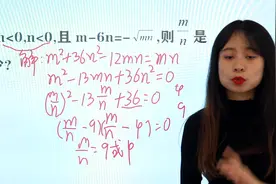 <0,n<0,且 m-6n=-√mn,则 m/n 是
解:m²+36n²-12mn=mn
m²-13mn+36n²=0
(m/n)²-13 m/n+36=0
(m/n-9)(m/n-4)=0
m/n=9或4